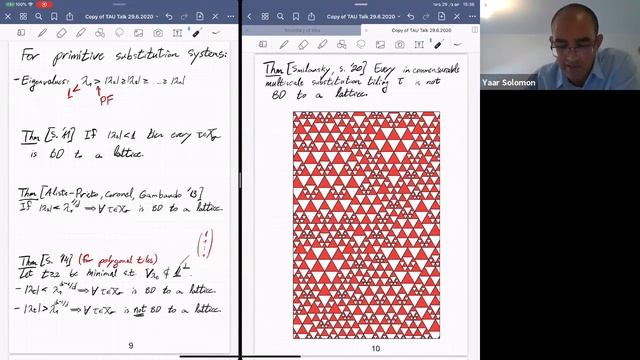 Copy of TAU Talk 29.6.2020
For primitive substitution systems:
- Eigenvalues: λ₁ > |λ₂| ≥ |λ₃| ≥ ... ≥ |λₙ|
1 <
PF
Thm [S. '11] If |λ₂| < 1 then every τ∈X
is BD to a lattice.
Thm [Aliste-Prieto, Coronel, Gambaudo '13]
If |λ₂| < λ₁^{1/d} ⟹ ∀ τ∈X is BD to a lattice.
Thm [S. '14] (for polygonal tiles)
Let t≥2 be minimal s.t.
- |λₜ| < λ₁^{(d-1)/d} ⟹ ∀ τ∈X is BD to a lattice.
- |λₜ| > λ₁^{(d-1)/d} ⟹ ∀ τ∈X is not BD to a lattice.
9
15:36
Copy of TAU Talk 29.6.2020
Copy of TAU Talk 29.6.2020
Thm [Smilansky, S. '20] Every incommensurable
multiscale substitution tiling τ is not
BD to a lattice.
10
Yaar Solomon